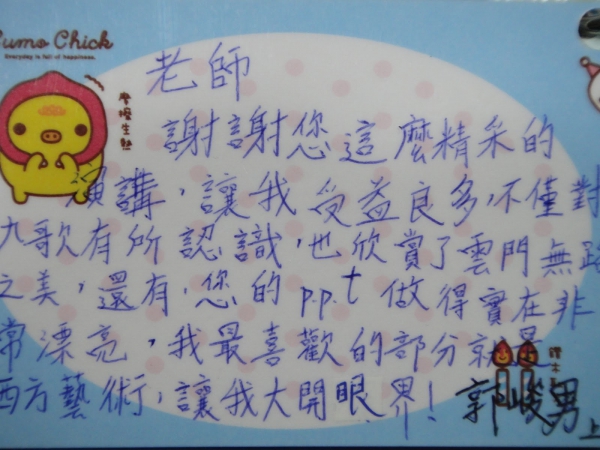 Sumo Chick
Everyday is full of happiness.
老師
謝謝您這麼精采的
演講,讓我受益良多,不僅對
九歌有所認識,也欣賞了雲門無
之美,還有,您的p.p.t做得實在非
常漂亮,我最喜歡的部分就是
西方藝術,讓我大開眼界!
郭峻男 上